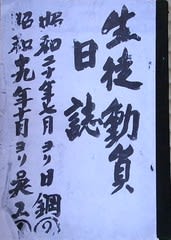 生徒動員
日誌
昭和二十年七月ヨリ日鋼(の)
昭和十九年十月ヨリ呉工の